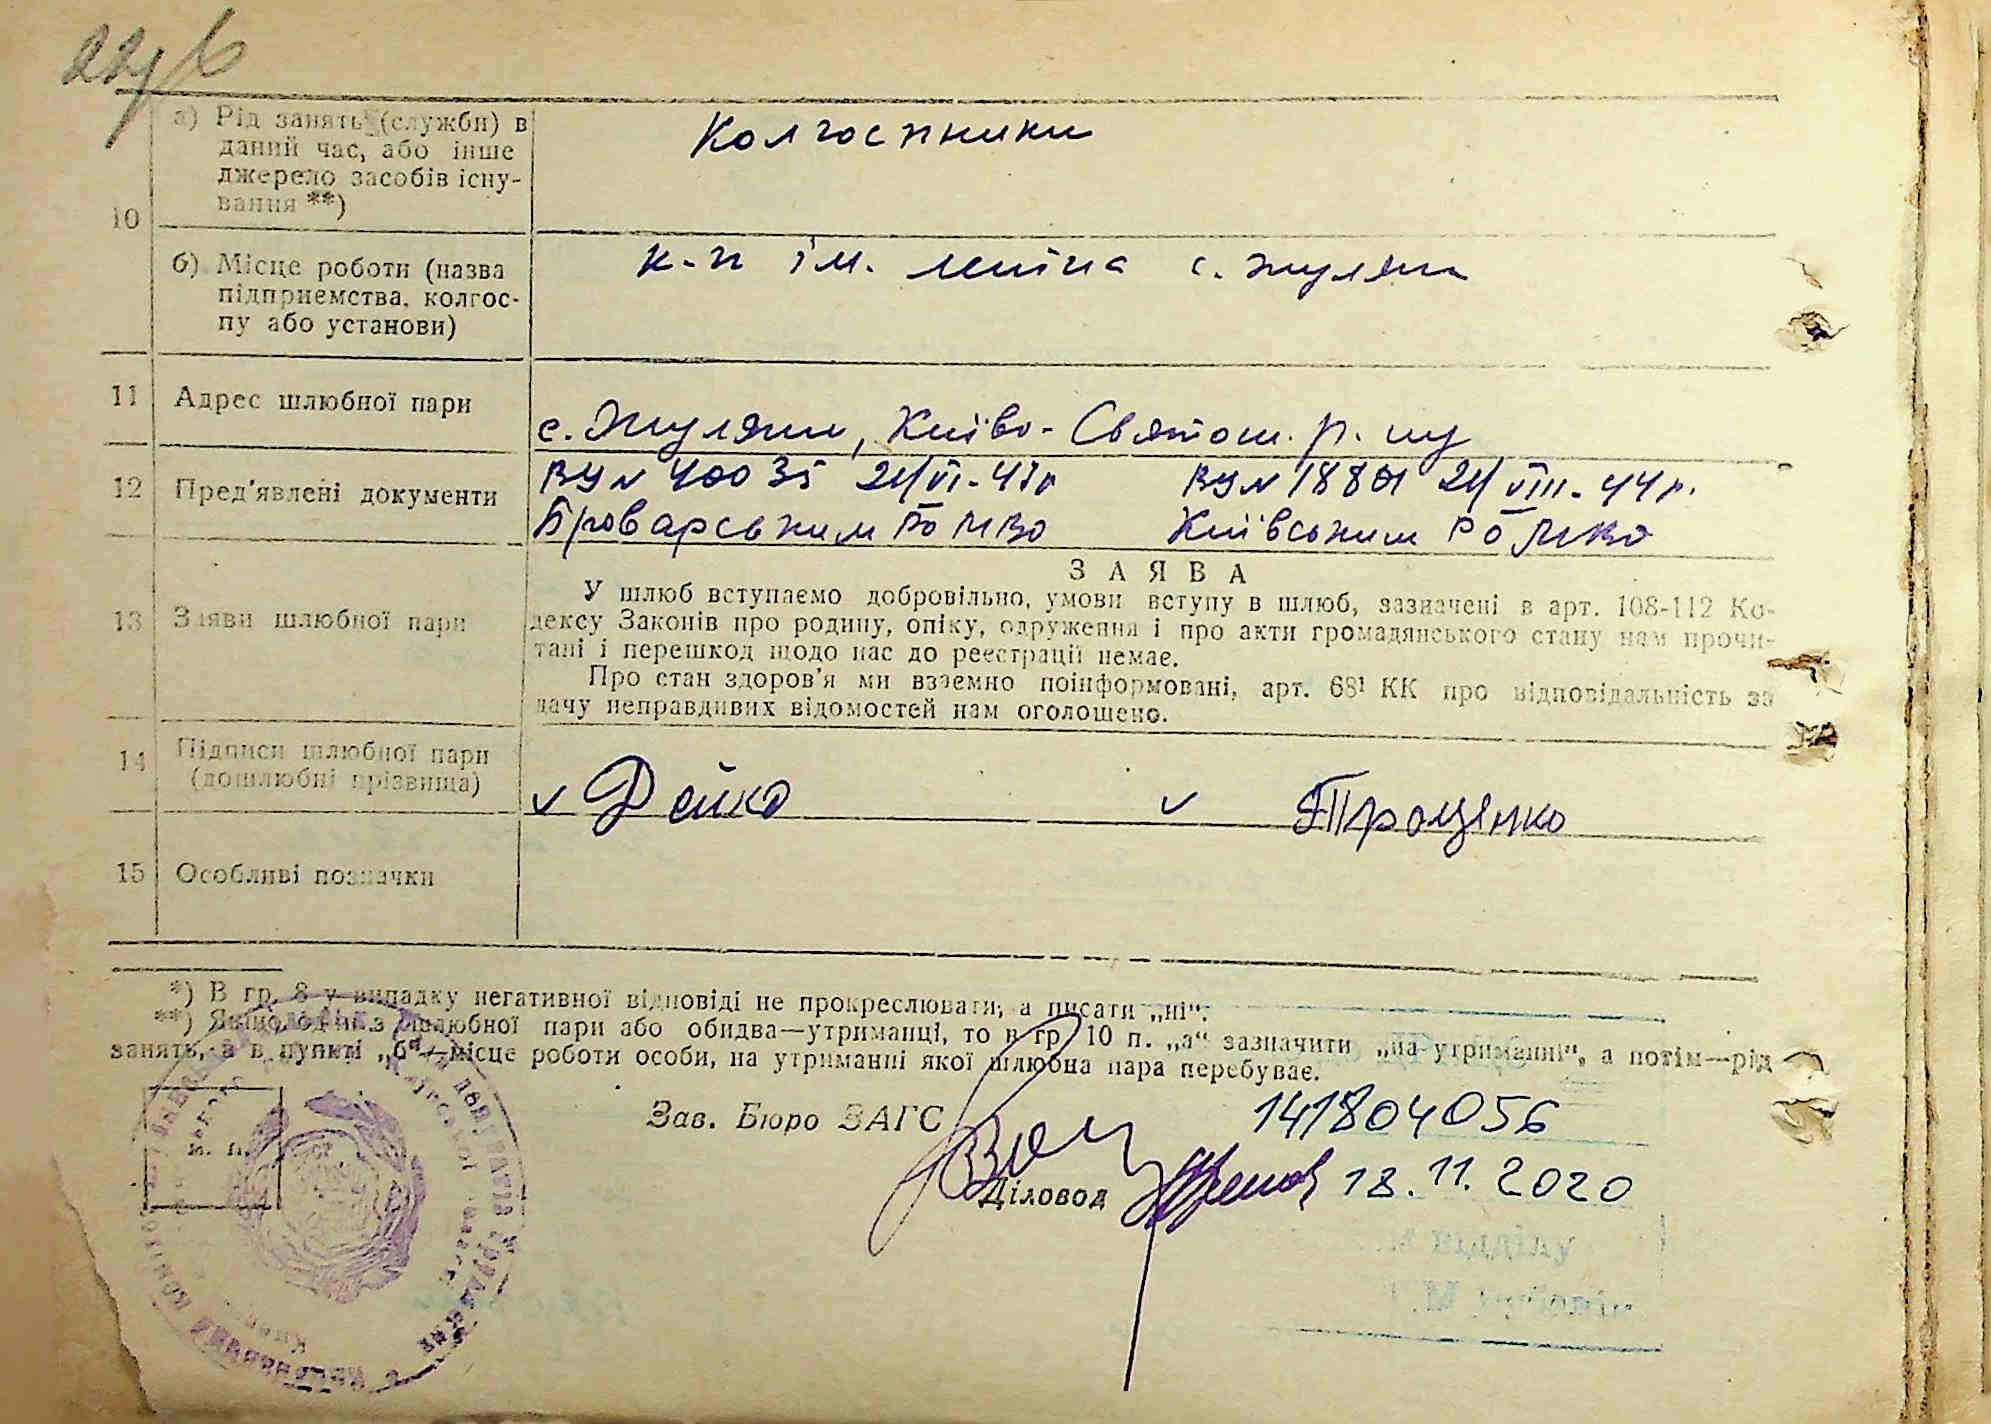 а) Рід занять (служби) в
даний час, або інше
джерело засобів існу-
вання **)
Колгоспники
10
б) Місце роботи (назва
підприємства, колгос-
пу або установи)
к-п ім. Леніна с. Жуляни
11 Адрес шлюбної пари
с. Жуляни, Києво-Святош. р-ну
12 Пред'явлені документи
Броварським РО МВД Київським РО МВД
ЗАЯВА
13 Заяви шлюбної пари
У шлюб вступаємо добровільно, умови вступу в шлюб, зазначені в арт. 108-112 Ко-
дексу Законів про родину, опіку, одруження і про акти громадянського стану нам прочи-
тані і перешкод щодо нас до реєстрації немає.
Про стан здоров'я ми взаємно поінформовані, арт. 68¹ КК про відповідальність за
дачу неправдивих відомостей нам оголошено.
14 Підписи шлюбної пари
(дошлюбні прізвища)
Дейко Проценко
15 Особливі позначки
*) В гр. 8 у випадку негативної відповіді не прокреслювати, а писати „ні“.
**) Якщо один з шлюбної пари або обидва—утриманці, то в гр. 10 п. „а“ зазначити „на утриманні“, а потім—рід
занять, а в пункті „б“—місце роботи особи, на утриманні якої шлюбна пара перебуває.
Зав. Бюро ЗАГС
141804056
м. п.
Діловод
18.11.2020
відділу